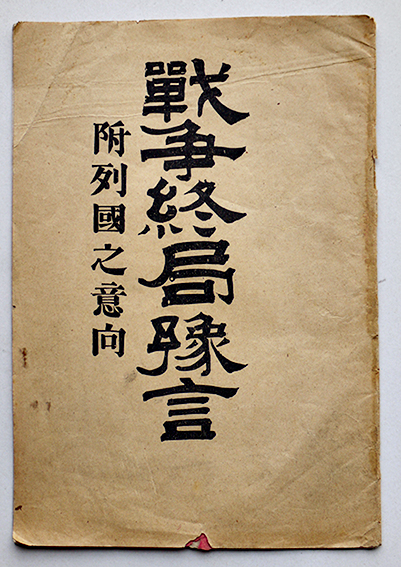 戰争終局豫言
附列國之意向